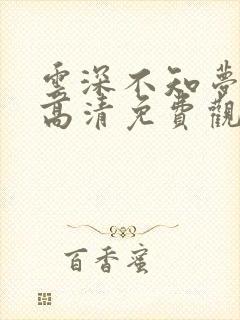 雲深不知夢
高清免費觀
百香蜜